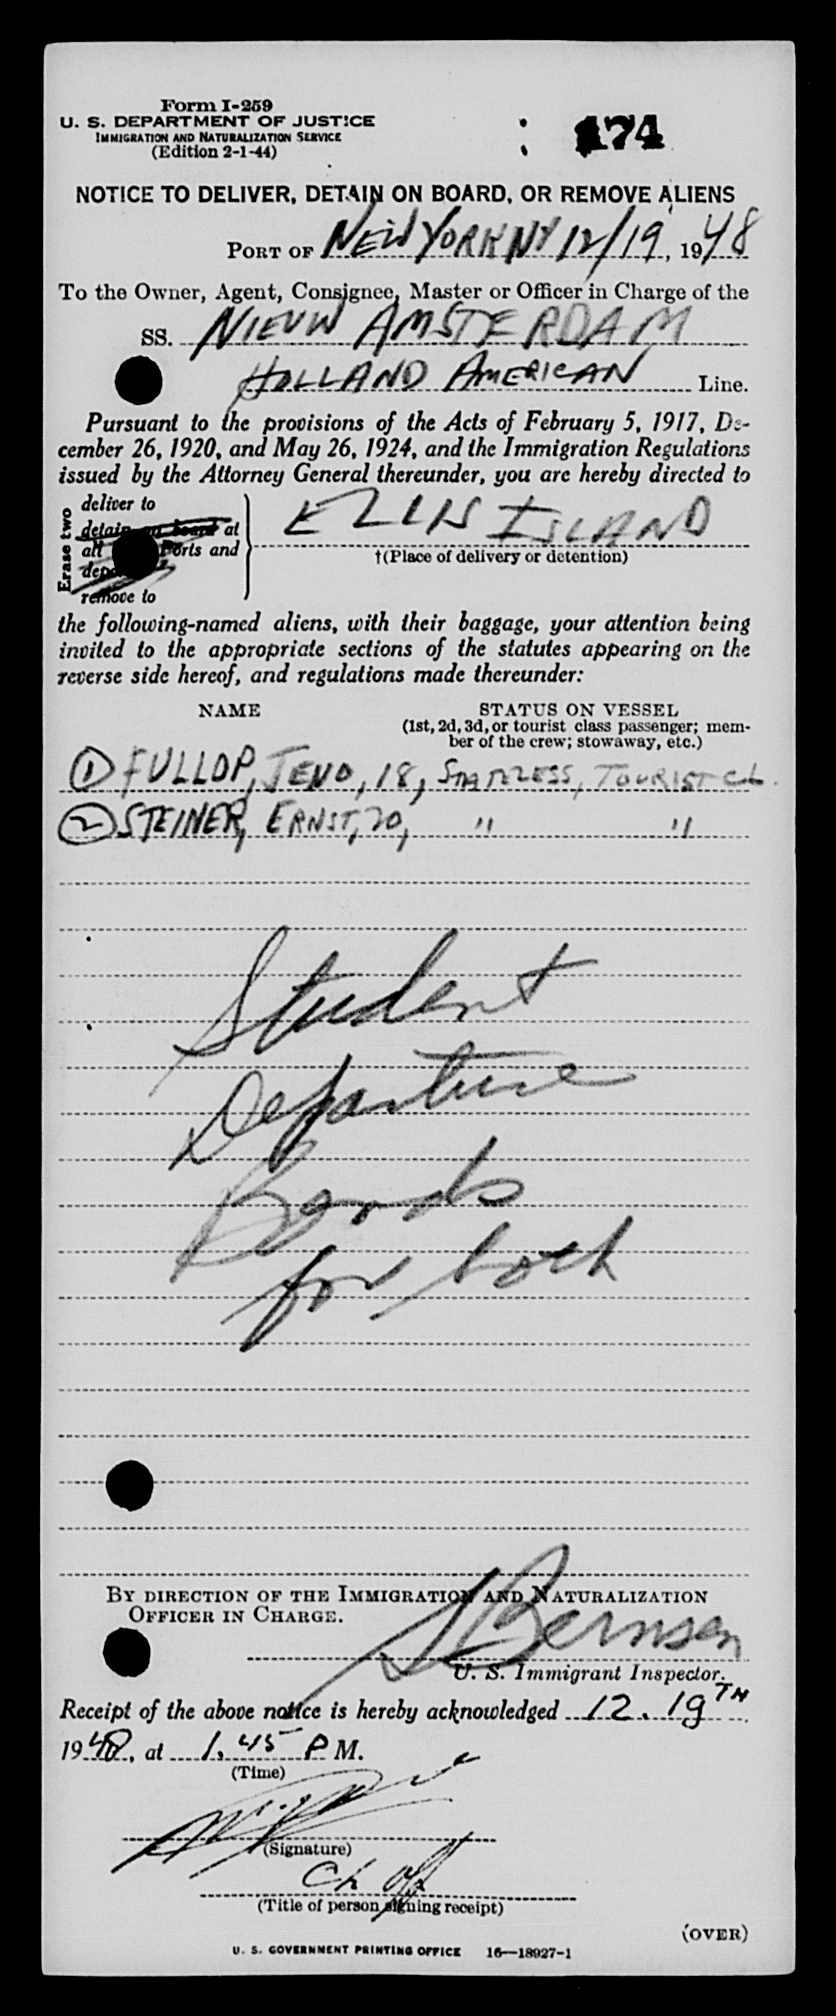 Form I-259
U. S. DEPARTMENT OF JUSTICE
IMMIGRATION AND NATURALIZATION SERVICE
(Edition 2-1-44)
174
NOTICE TO DELIVER, DETAIN ON BOARD, OR REMOVE ALIENS
PORT OF NEW YORK NY 12/19, 1948
To the Owner, Agent, Consignee, Master or Officer in Charge of the
SS. NIEUW AMSTERDAM
HOLLAND AMERICAN Line.
Pursuant to the provisions of the Acts of February 5, 1917, De-
cember 26, 1920, and May 26, 1924, and the Immigration Regulations
issued by the Attorney General thereunder, you are hereby directed to
Erase two
deliver to
detain on board at
all ports and
remove to
ELLIS ISLAND
†(Place of delivery or detention)
the following-named aliens, with their baggage, your attention being
invited to the appropriate sections of the statutes appearing on the
reverse side hereof, and regulations made thereunder:
NAME STATUS ON VESSEL
(1st, 2d, 3d, or tourist class passenger; mem-
ber of the crew; stowaway, etc.)
① FULLOP, JENO, 18, STATELESS, TOURIST CL.
② STEINER, ERNST, 20, " "
Student
Departure
Bonds
for both
BY DIRECTION OF THE IMMIGRATION AND NATURALIZATION
OFFICER IN CHARGE.
S Bernsen
U. S. Immigrant Inspector.
Receipt of the above notice is hereby acknowledged 12. 19TH
1948, at 1.45 P M.
(Time)
(Signature)
Ch off
(Title of person signing receipt)
(OVER)
U. S. GOVERNMENT PRINTING OFFICE 16—18927-1